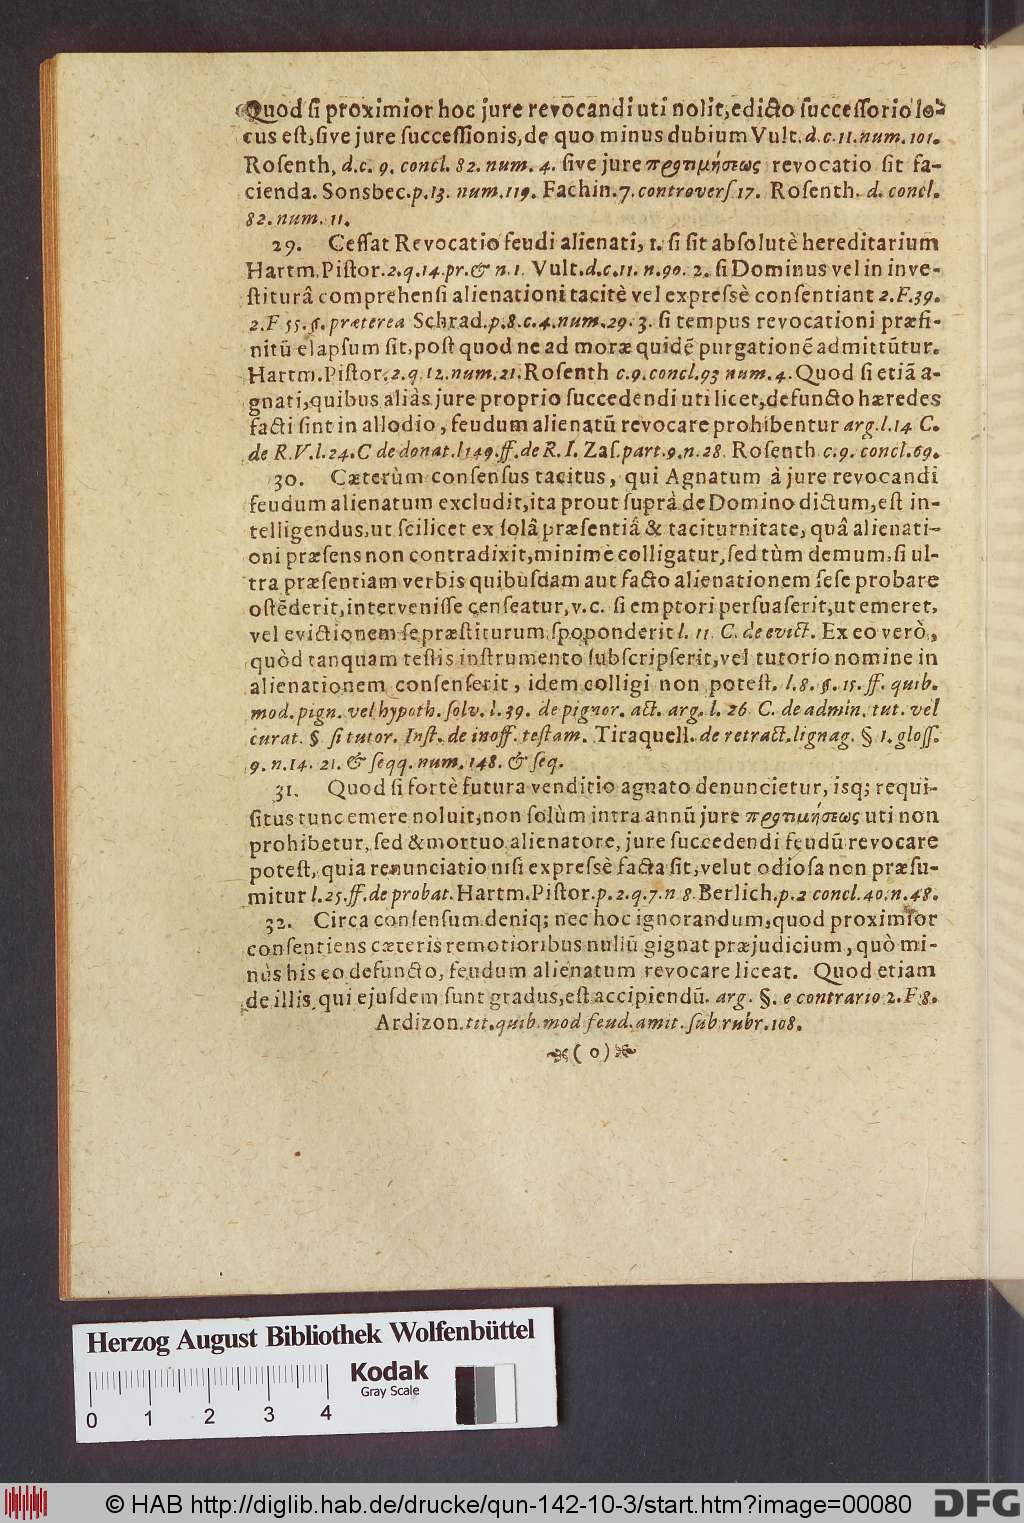 Quod ſi proximior hoc jure revocandi uti nolit, edicto ſucceſſorio lo-
cus eſt, ſive jure ſucceſſionis, de quo minus dubium Vult. d. c. 11. num. 101.
Roſenth. d. c. 9. concl. 82. num. 4. ſive jure προτιμήσεως revocatio ſit fa-
cienda. Sonsbec. p. 13. num. 119. Fachin. 7. controverſ 17. Roſenth. d. concl.
82. num. 11.
29. Ceſſat Revocatio feudi alienati, 1. ſi ſit abſolutè hereditarium
Hartm. Piſtor. 2. q. 14. pr. & n. 1. Vult. d. c. 11. n. 90. 2. ſi Dominus vel in inve-
ſtiturâ comprehenſi alienationi tacitè vel expreſsè conſentiant 2. F. 39.
2. F 55. §. præterea Schrad. p. 8. c. 4. num. 29. 3. ſi tempus revocationi præfi-
nitū elapſum ſit, poſt quod ne ad moræ quidē purgationē admittūtur.
Hartm. Piſtor. 2. q. 12. num. 21. Roſenth c. 9. concl. 93 num. 4. Quod ſi etiā a-
gnati, quibus aliàs jure proprio ſuccedendi uti licet, defuncto hæredes
facti ſint in allodio, feudum alienatū revocare prohibentur arg. l. 14 C.
de R. V. l. 24. C de donat. l 149. ff. de R. I. Zaſ. part. 9. n. 28. Roſenth c. 9. concl. 69.
30. Cæterùm conſenſus tacitus, qui Agnatum à jure revocandi
feudum alienatum excludit, ita prout ſuprà de Domino dictum, eſt in-
telligendus, ut ſcilicet ex ſolâ præſentiâ & taciturnitate, quâ alienati-
oni præſens non contradixit, minimè colligatur, ſed tùm demum, ſi ul-
tra præſentiam verbis quibuſdam aut facto alienationem ſeſe probare
oſtēderit, interveniſſe cenſeatur, v. c. ſi emptori perſuaſerit, ut emeret,
vel evictionem ſe præſtiturum ſpoponderit l. 11. C. de evict. Ex eo verò,
quòd tanquam teſtis inſtrumento ſubſcripſerit, vel tutorio nomine in
alienationem conſenſerit, idem colligi non poteſt. l. 8. §. 15. ff. quib.
mod. pign. vel hypoth. ſolv. l. 39. de pignor. act. arg. l. 26 C. de admin. tut. vel
curat. § ſi tutor. Inſt. de inoff. teſtam. Tiraquell. de retract. lignag. § 1. gloſſ.
9. n. 14. 21. & ſeqq. num. 148. & ſeq.
31. Quod ſi fortè futura venditio agnato denuncietur, isq; requi-
ſitus tunc emere noluit, non ſolùm intra annū jure προτιμήσεως uti non
prohibetur, ſed & mortuo alienatore, jure ſuccedendi feudū revocare
poteſt, quia renunciatio niſi expreſsè facta ſit, velut odioſa non præſu-
mitur l. 25. ff. de probat. Hartm. Piſtor. p. 2. q. 7. n 8. Berlich. p. 2 concl. 40. n. 48.
32. Circa conſenſum deniq; nec hoc ignorandum, quod proximior
conſentiens cæteris remotioribus nullū gignat præjudicium, quò mi-
nùs his eo defuncto, feudum alienatum revocare liceat. Quod etiam
de illis, qui ejuſdem ſunt gradus, eſt accipiendū. arg. §. e contrario 2. F. 8.
Ardizon. tit. quib. mod feud. amit. ſub rubr. 108.
( o )
Herzog August Bibliothek Wolfenbüttel
Kodak
Gray Scale
0 1 2 3 4
© HAB http://diglib.hab.de/drucke/qun-142-10-3/start.htm?image=00080
DFG